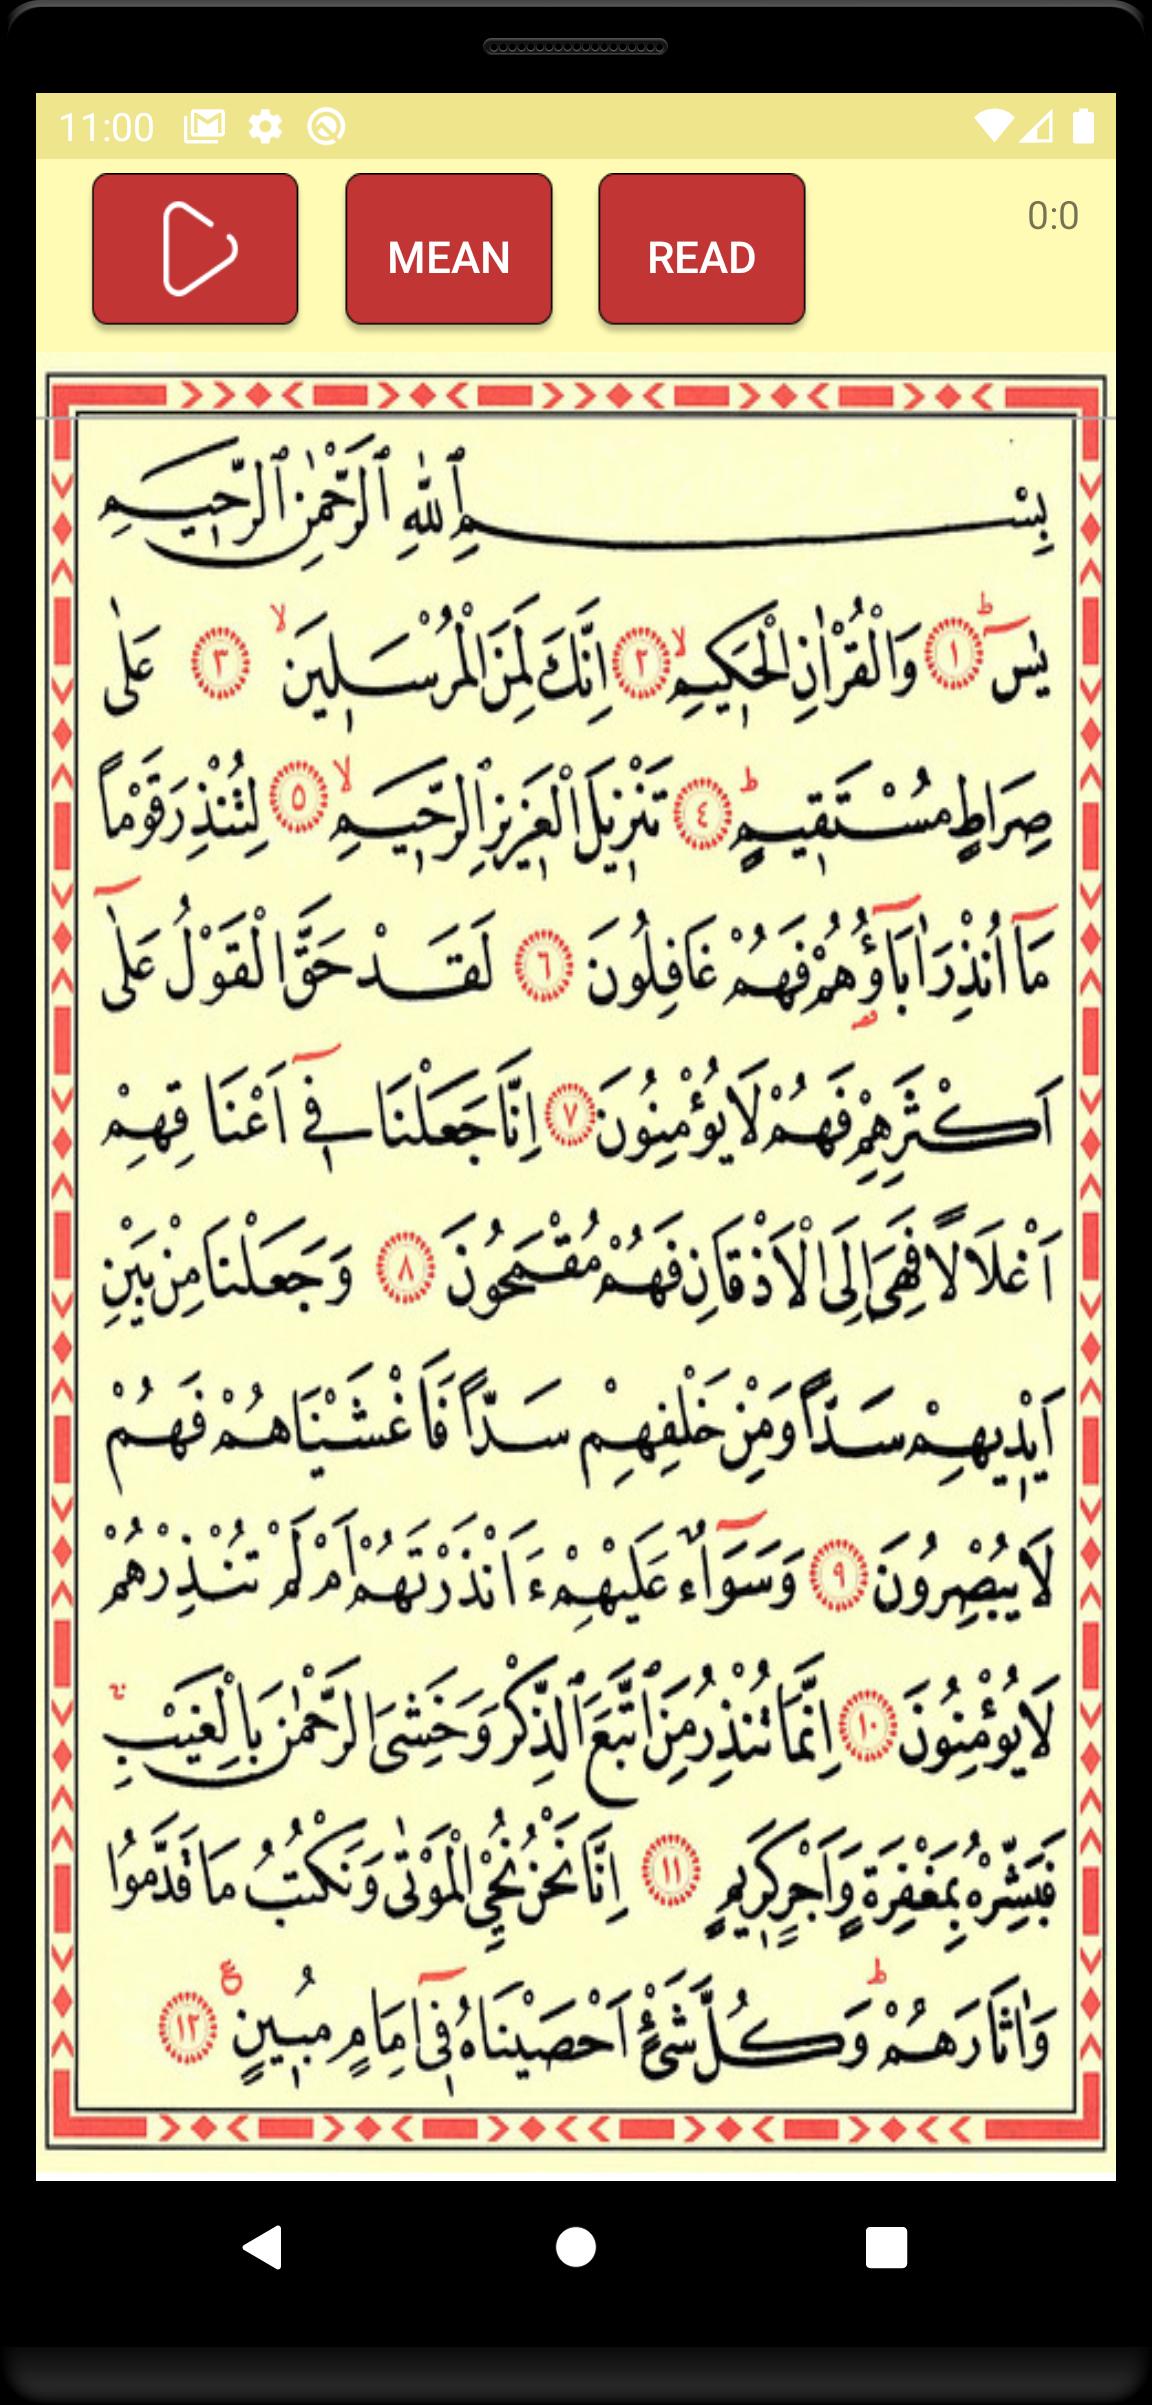 11:00
MEAN
READ
0:0
بِسْمِ ٱللّٰهِ ٱلرَّحْمٰنِ ٱلرَّحِيمِ
يٰسٓ ۜ ط ١ وَالْقُرْاٰنِ الْحَكِيمِ لا ٢ اِنَّكَ لَمِنَ الْمُرْسَلِينَ لا ٣ عَلٰى
صِرَاطٍ مُسْتَقِيمٍ ط ٤ تَنْزِيلَ الْعَزِيزِ الرَّحِيمِ لا ٥ لِتُنْذِرَ قَوْمًا
مَٓا اُنْذِرَ اٰبَٓاؤُ۬هُمْ فَهُمْ غَافِلُونَ ٦ لَقَدْ حَقَّ الْقَوْلُ عَلٰٓى
اَكْثَرِهِمْ فَهُمْ لَا يُؤْمِنُونَ ٧ اِنَّا جَعَلْنَا فِٓي اَعْنَاقِهِمْ
اَغْلَالًا فَهِيَ اِلَى الْاَذْقَانِ فَهُمْ مُقْمَحُونَ ٨ وَجَعَلْنَا مِنْ بَيْنِ
اَيْدِيهِمْ سَدًّا وَمِنْ خَلْفِهِمْ سَدًّا فَاَغْشَيْنَاهُمْ فَهُمْ
لَا يُبْصِرُونَ ٩ وَسَوَٓاءٌ عَلَيْهِمْ ءَاَنْذَرْتَهُمْ اَمْ لَمْ تُنْذِرْهُمْ
لَا يُؤْمِنُونَ ١٠ اِنَّمَا تُنْذِرُ مَنِ ٱتَّبَعَ ٱلذِّكْرَ وَخَشِيَ الرَّحْمٰنَ بِالْغَيْبِ
فَبَشِّرْهُ بِمَغْفِرَةٍ وَاَجْرٍ كَرِيمٍ ١١ اِنَّا نَحْنُ نُحْيِ الْمَوْتٰى وَنَكْتُبُ مَا قَدَّمُوا
وَاٰثَارَهُمْ ط وَكُلَّ شَيْءٍ اَحْصَيْنَاهُ فِٓي اِمَامٍ مُبِينٍ ع ١٢